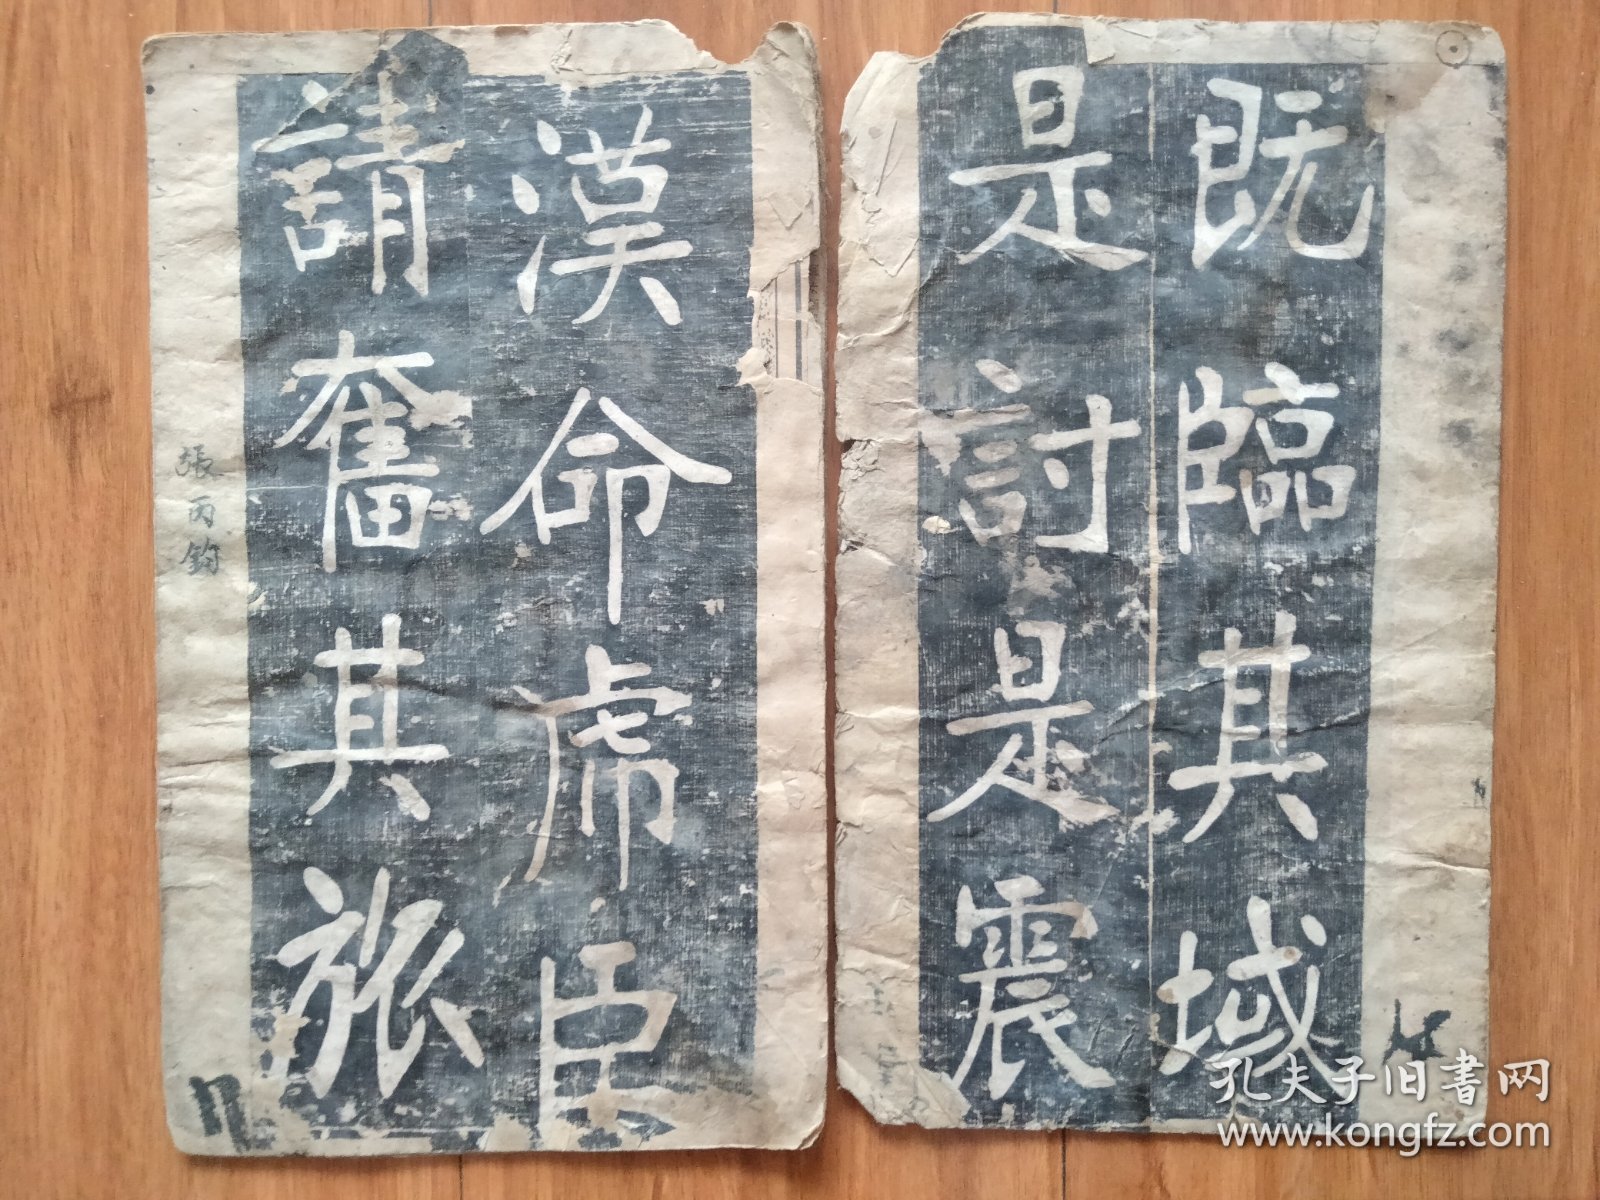 既臨其域
是討是震
漢命虎臣
請奮其旅
張丙鈞
孔夫子旧書网
www.kongfz.com